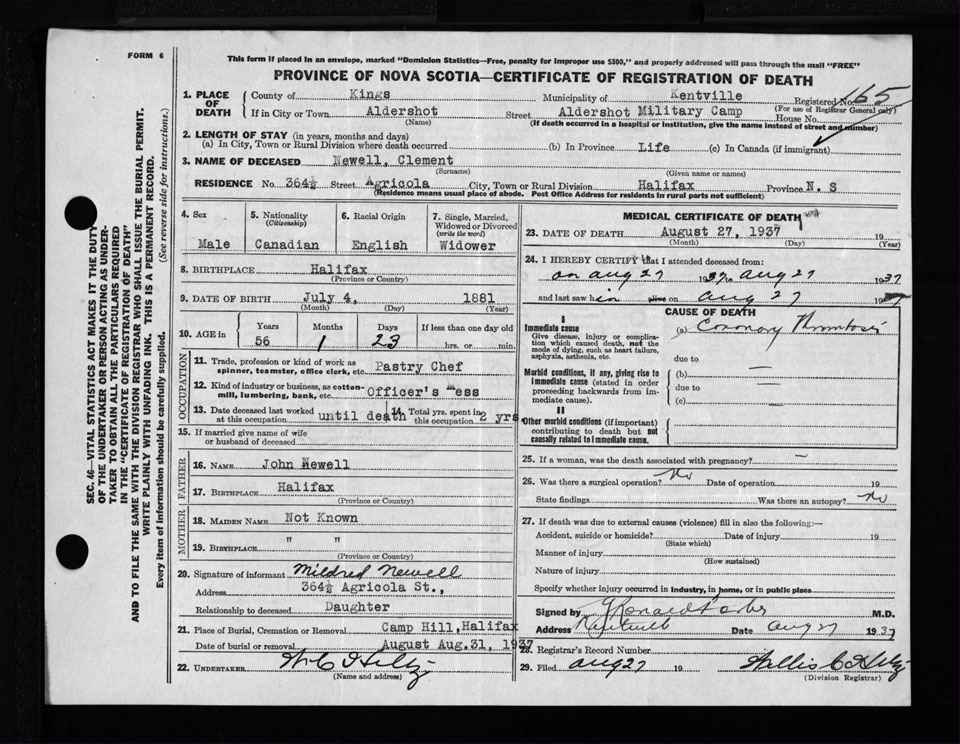 FORM 6
This form if placed in an envelope, marked "Dominion Statistics—Free, penalty for improper use $300," and properly addressed will pass through the mail "FREE"
PROVINCE OF NOVA SCOTIA—CERTIFICATE OF REGISTRATION OF DEATH
SEC. 46—VITAL STATISTICS ACT MAKES IT THE DUTY
OF THE UNDERTAKER OR PERSON ACTING AS UNDER-
TAKER TO OBTAIN ALL THE PARTICULARS REQUIRED
IN THE "CERTIFICATE OF REGISTRATION OF DEATH"
AND TO FILE THE SAME WITH THE DIVISION REGISTRAR WHO SHALL ISSUE THE BURIAL PERMIT.
WRITE PLAINLY WITH UNFADING INK. THIS IS A PERMANENT RECORD.
Every item of information should be carefully supplied. (See reverse side for instructions.)
1. PLACE OF DEATH County of Kings Municipality of Kentville Registered No. 165
(For use of Registrar General only)
If in City or Town Aldershot Street Aldershot Military Camp House No.
(Name) (If death occurred in a hospital or institution, give the name instead of street and number)
2. LENGTH OF STAY (in years, months and days)
(a) In City, Town or Rural Division where death occurred (b) In Province Life (c) In Canada (if immigrant)
3. NAME OF DECEASED Newell, Clement
(Surname) (Given name or names)
RESIDENCE No. 364½ Street Agricola City, Town or Rural Division Halifax Province N. S
(Residence means usual place of abode. Post Office Address for residents in rural parts not sufficient)
4. Sex 5. Nationality (Citizenship) 6. Racial Origin 7. Single, Married, Widowed or Divorced (write the word)
Male Canadian English Widower
8. BIRTHPLACE Halifax
(Province or Country)
9. DATE OF BIRTH July 4, 1881
(Month) (Day) (Year)
10. AGE in Years Months Days If less than one day old
56 1 23 hrs. or min.
OCCUPATION
11. Trade, profession or kind of work as spinner, teamster, office clerk, etc. Pastry Chef
12. Kind of industry or business, as cotton-mill, lumbering, bank, etc. Officer's Mess
13. Date deceased last worked at this occupation until death 14. Total yrs. spent in this occupation 2 yrs
15. If married give name of wife or husband of deceased
FATHER
16. NAME John Newell
17. BIRTHPLACE Halifax
(Province or Country)
MOTHER
18. MAIDEN NAME Not Known
19. BIRTHPLACE " "
(Province or Country)
20. Signature of informant Mildred Newell
Address 364½ Agricola St.,
Relationship to deceased Daughter
21. Place of Burial, Cremation or Removal Camp Hill, Halifax
Date of burial or removal August Aug. 31, 1937
22. UNDERTAKER
(Name and address)
MEDICAL CERTIFICATE OF DEATH
23. DATE OF DEATH August 27, 1937 19
(Month) (Day) (Year)
24. I HEREBY CERTIFY that I attended deceased from:
on aug 27 1937 to aug 27 1937
and last saw him alive on aug 27 1937
CAUSE OF DEATH
I
Immediate cause (a) Coronary Thrombosis
Give disease, injury or complication which caused death, not the mode of dying, such as heart failure, asphyxia, asthenia, etc.
due to
Morbid conditions, if any, giving rise to immediate cause (stated in order proceeding backwards from immediate cause).
(b) —
due to —
(c) —
II
Other morbid conditions (if important) contributing to death but not causally related to immediate cause.
25. If a woman, was the death associated with pregnancy? —
26. Was there a surgical operation? No Date of operation 19
State findings Was there an autopsy? No
27. If death was due to external causes (violence) fill in also the following:—
Accident, suicide or homicide? Date of injury 19
(State which)
Manner of injury
(How sustained)
Nature of injury
Specify whether injury occurred in industry, in home, or in public place
Signed by M.D.
Address Kentville Date aug 27 1937
28. Registrar's Record Number
29. Filed aug 27 19
(Division Registrar)